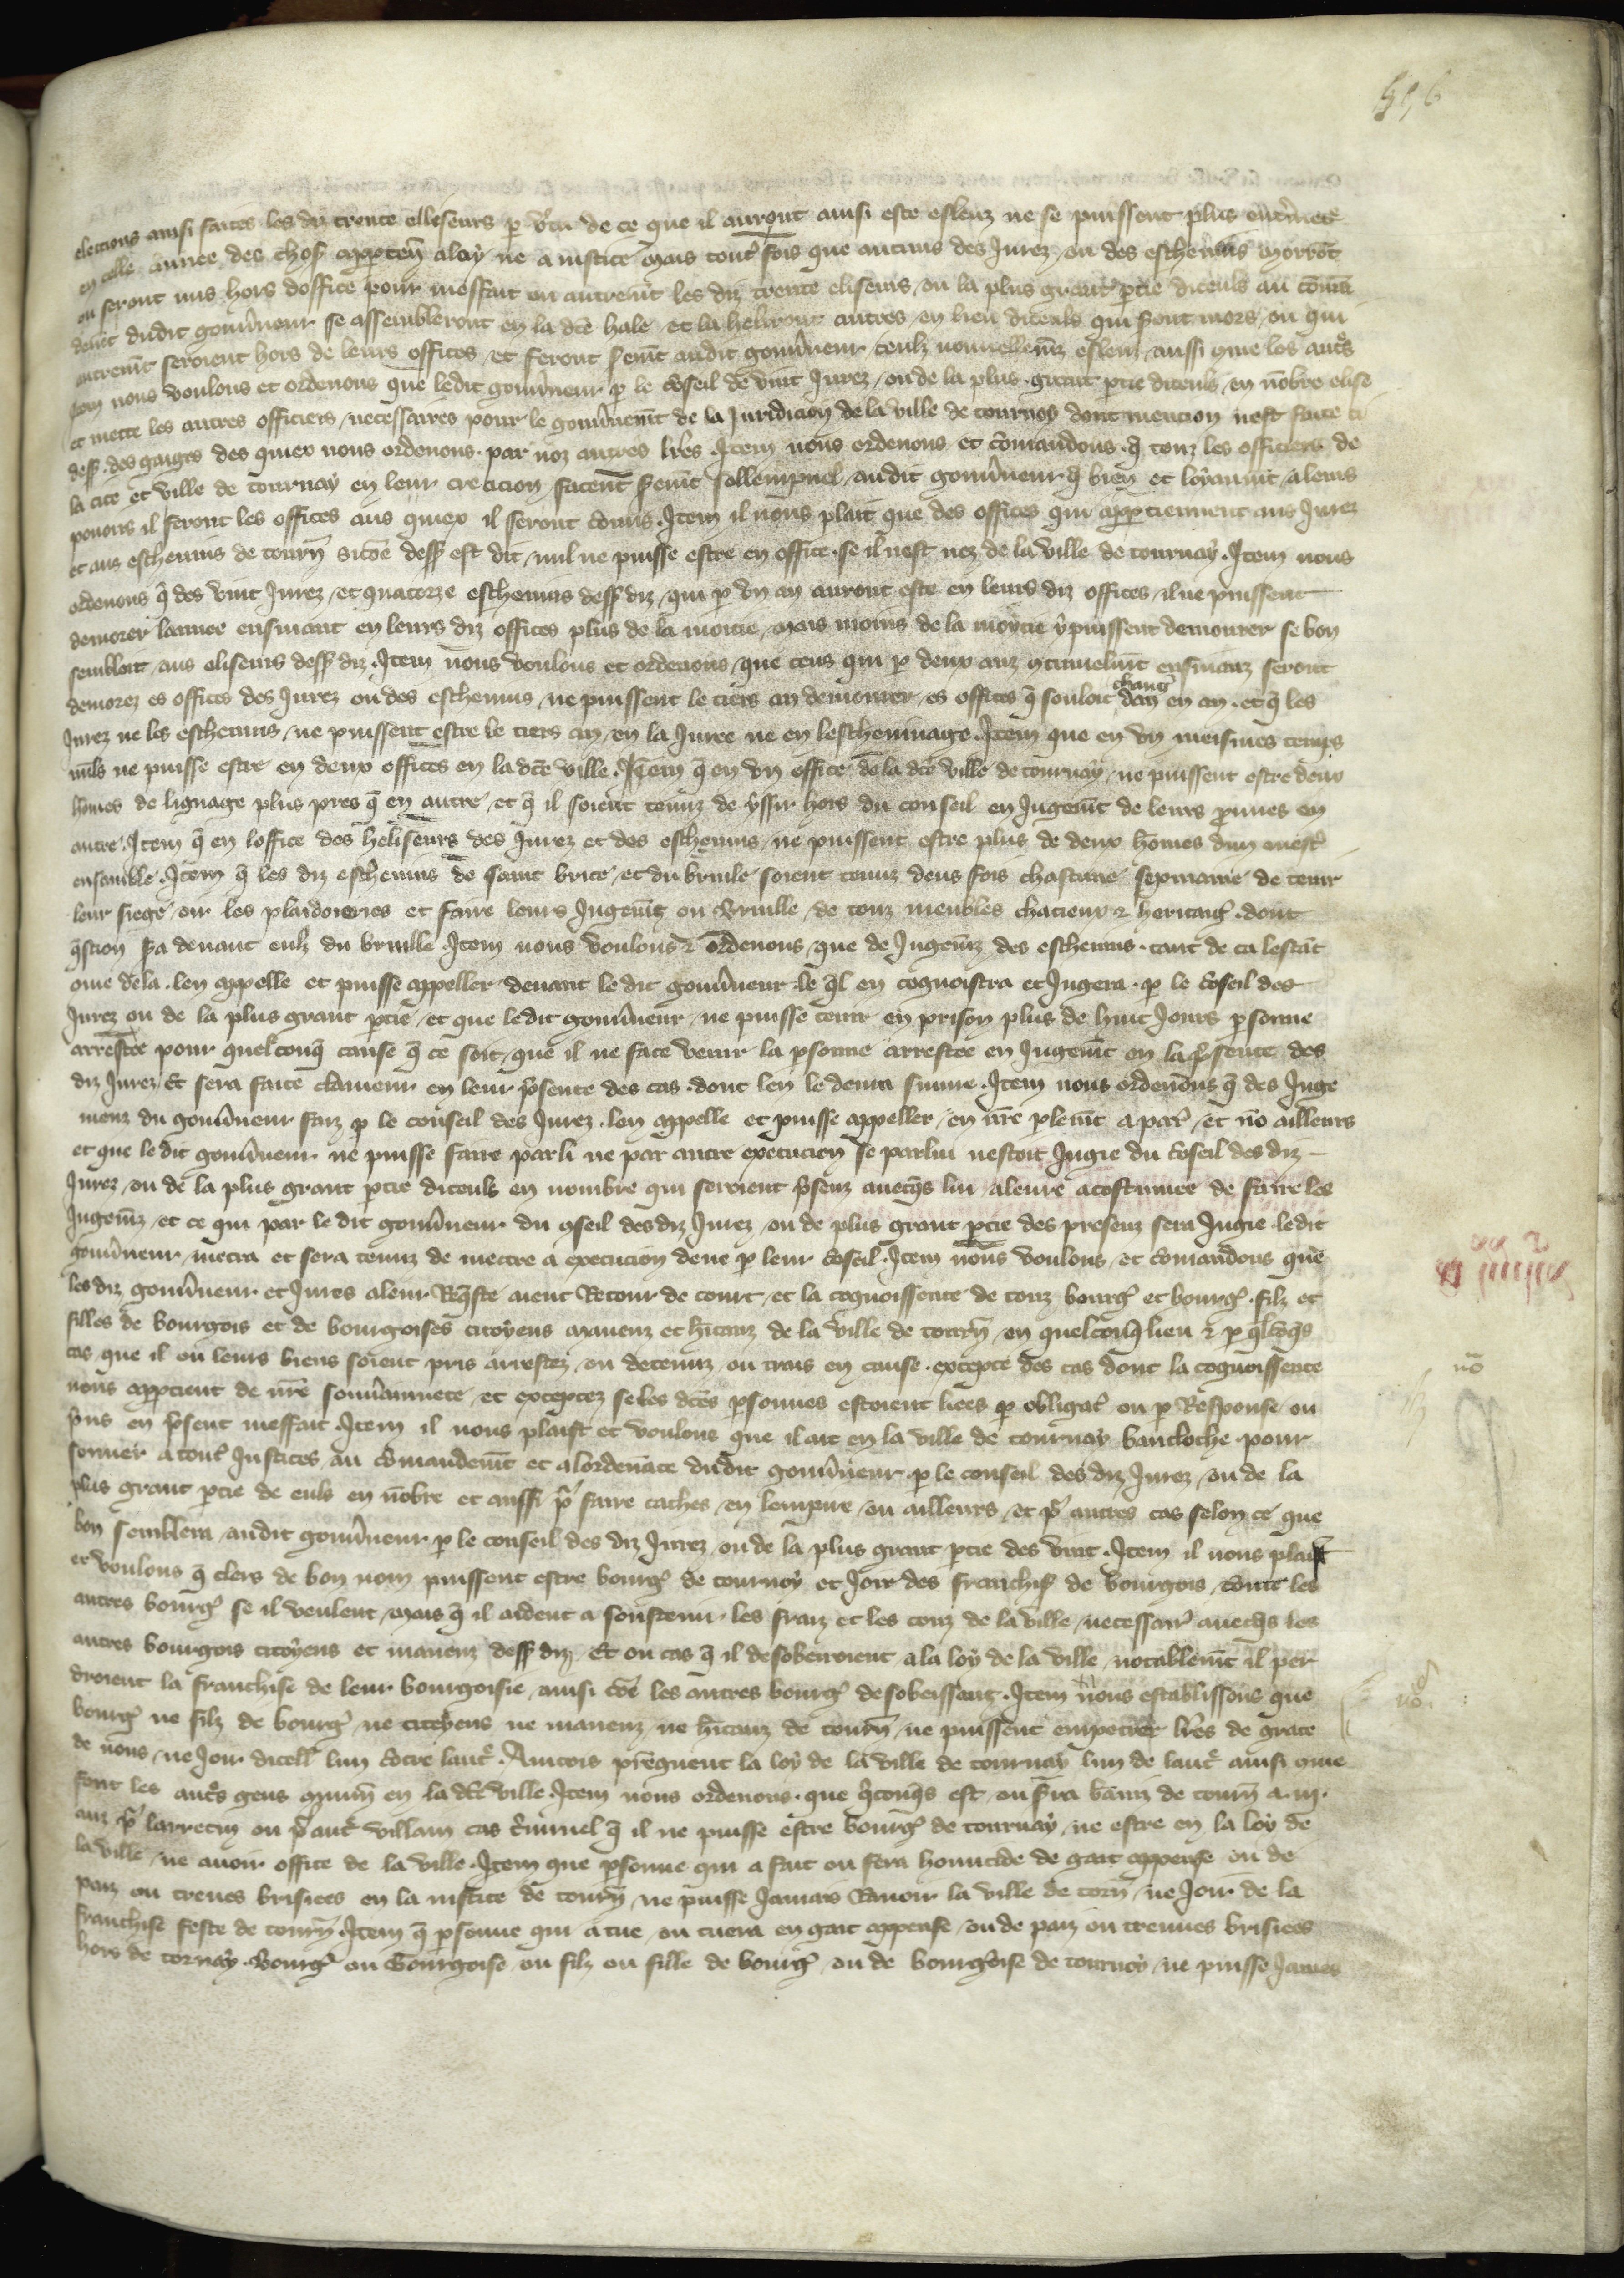 elections ainsi faites les diz trente elliseurs p vtu de ce que il auront ainsi este esleuz ne se puissent plus entmet
en celle annee des chos appten a loy ne a iustice Mais tout fois que aucuns des Jurez ou des escheuins morrot
ou seront mis hors doffice pour meffait ou autremt les diz trente eliseurs ou la plus grant ptie diceuls au coma
demt dudit gouuneur se assembleront en la dce hale et la heliront autres en lieu diceuls qui sont mors ou qui
autremt seroient hors de leurs offices et feront semt audit gouuneur ceulz nouuellemz esleuz aussi qme les auts
Item nous voulons et ordenons que ledit gouuneur p le coseil de vint Jurez ou de la plus grant ptie diceuls en nobre elise
et mette les autres officiers necessaires pour le gouunemt de la Juridicion de la ville de tournay dont mencion nest faite ci
dess des gaiges des quiex nous ordenons par noz autres lres Item nous ordenons et comandons q touz les officiers de
la cite et ville de tournay en leur creacion facent semt sollempnel audit gouuneur q bien et loyaumt a leurs
pouoirs il feront les offices aus quiex il seront comis Item il nous plait que des offices qui apptiennent aus Jurez
et aus escheuins de tourn sicoe dess est dit nul ne puisse estre en office se il nest nez de la ville de tournay Item nous
ordenons q des vint Jurez et quatorze escheuins dess diz qui p vn an auront este en leurs diz offices il ne puissent
demorer lannee ensiuant en leurs diz offices plus de la moitie Mais moins de la moytie y puissent demourer se bon
sembloit aus eliseurs dess diz Item nous voulons et ordenons que ceus qui p deux anz qtinuelmt ensiuanz seront
demorez es offices des Jurez ou des escheuins ne puissent le tiers an demourer es offices q souloit chang dan en an et q les
Jurez ne les escheuins ne puissent estre le tiers an en la Juree ne en lescheuinage Item que en vn meismes temps
nuls ne puisse estre en deux offices en la dce ville Item q en vn office de la dce ville de tournay ne puissent estre deux
homes de lignage plus pres q en autre et q il soient tenuz de yssir hors du conseil en Jugemt de leurs pmes en
autre Item q en loffice des heliseurs des Jurez et des escheuins ne puissent estre plus de deux homes dun mest
ensamble Item q les diz escheuins de saint brice et du bruile soient tenuz deus fois chascune sepmaine de tenir
leur siege oir les plaidoieries et faire leurs Jugemz ou Bruille de touz meubles chatieux & heritag dont
qstion sa deuant eulz du bruille Item nous voulons & ordenons que de Jugemz des escheuins tant de ca lestat
qme dela len appelle et puisse appeller deuant le dit gouuneur le ql en cognoistra et Jugera p le coseil des
Jurez ou de la plus grant ptie et que ledit gouuneur ne puisse tenir en prison plus de huit Jours psonne
arrestee pour quelconq cause q ce soit que il ne face venir la psonne arrestee en Jugemt en la psence des
diz Jurez Et sera faite clameur en leur psence des cas dont len le deura suiure Item nous ordenons q des Juge
menz du gouuneur faiz p le conseil des Jurez len appelle et puisse appeller en nre plemt a par et no ailleurs
et que ledit gouuneur ne puisse faire par li ne par autre execucion se par lui nestoit Jugie du coseil des diz
Jurez ou de la plus grant ptie diceuls en nombre qui seroient psenz auecqs lui a leure acostumee de faire les
Jugemz et ce qui par le dit gouuneur du qseil des diz Jurez ou de plus grant ptie des presenz sera Jugie ledit
gouuneur metra et sera tenuz de mectre a execucion deue p leur coseil Item nous voulons et comandons que
les diz gouuneur et Jures a leur Rqste aient Retour de court et la cognoissence de touz bourg et bourg filz et
filles de bourgois et de bourgoises citoyens manenz et hitanz de la ville de tourn en quelconq lieu & p qlcoqs
cas que il ou leurs biens soient pris arrestez ou detenuz ou trais en cause excepte des cas dont la cognoissence
nous apptient de nre souuainnete et exceptez se les dces psonnes estoient liees p obligat ou p Response ou
pns en psent meffait Item il nous plaist et voulons que il ait en la ville de tournay bancloche pour
sonner a tout Justices au comandemt et a lordenace dudit gouuneur p le conseil des diz Jurez ou de la
plus grant ptie de euls en nobre et aussi p faire caches en lempire ou ailleurs et p autres cas selon ce que
bon semblera audit gouuneur p le conseil des diz Jurez ou de la plus grant ptie des vint Item il nous plaist
et voulons q clers de bon nom puissent estre bourg de tournay et Joir des franchis de bourgois come les
autres bourg se il veulent Mais q il aident a soustenir les fraiz et les couz de la ville necessair auecqs les
autres bourgois citoyens et manenz dess diz Et ou cas q il desobeiroient a la loy de la ville notablemt il per
droient la franchise de leur bourgoisie ainsi coe les autres bourg desobeissent Item nous establissons que
bourg ne filz de bourg ne citoyens ne manenz ne hitanz de tourn ne puissent empetrer lres de grace
de nous ne Joir dicell lun cotre laut Aincois preguent la loy de la ville de tournay lun de laut ainsi qme
font les auts gens qmun en la dce ville Item nous ordenons que qconqs est ou sera baniz de tourn a iij
anz p larrecin ou p aut villain cas criminel q il ne puisse estre bourg de tournay ne estre en la loy de
la ville ne auoir office de la ville Item que psonne qui a fait ou fera homicide de gait appense ou de
paiz ou treues brisiees en la iustice de tourn ne puisse Jamais Rauoir la ville de torn ne Joir de la
franchise feste de tourn Item q psonne qui a tue ou tuera en gait appense ou de paiz ou treuues brisiees
hors de tornay Bourg ou Bourgoise ou filz ou fille de bourg ou de bourgoise de tournay ne puisse James